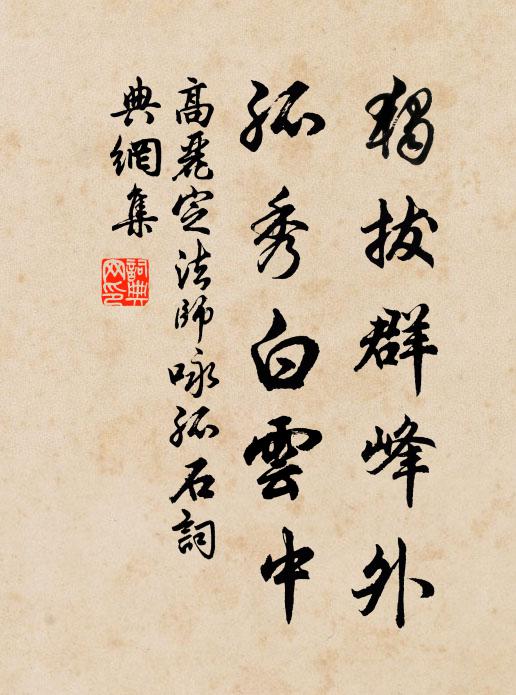 獨拔群峰外
孤秀白雲中
高麗定法師咏孤石詞
典網集
詞典
网印